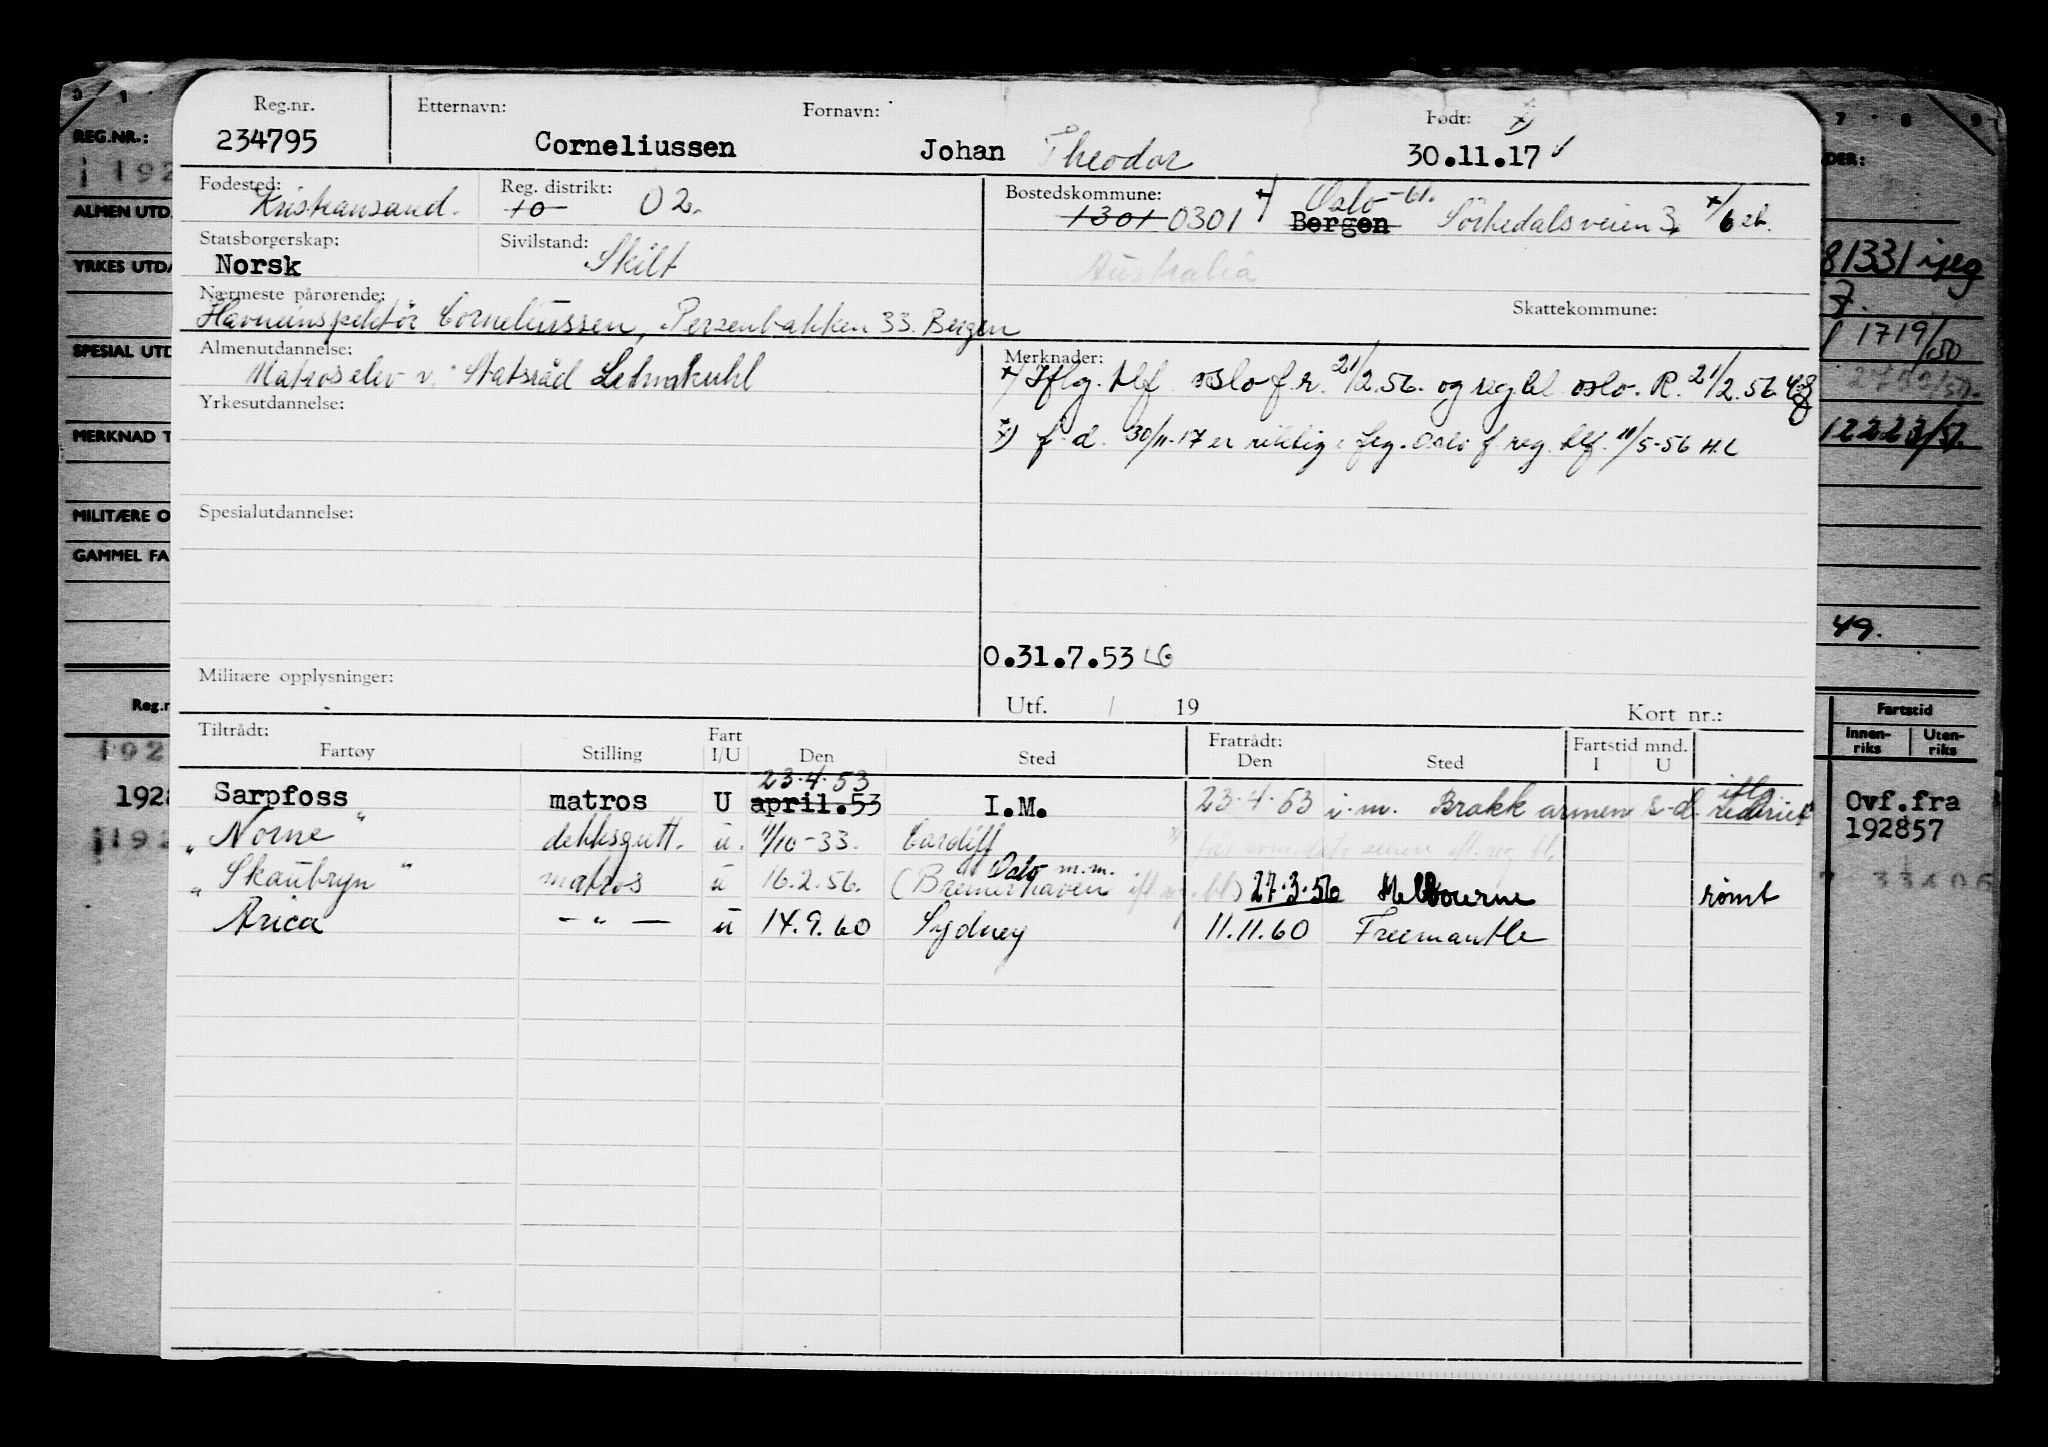 Reg.nr. Etternavn: Fornavn: Født: x)
234795 Corneliussen Johan Theodor 30.11.17
Fødested: Kristiansand. Reg. distrikt: 10 02. Bostedskommune: 1301 0301 x) Oslo Bergen Sørkedalsveien 3
Statsborgerskap: Norsk Sivilstand: Skilt Australia
Nærmeste pårørende: Skattekommune:
Havneinspektør Corneliussen, 33. Bergen
Almenutdannelse: Merknader:
Matroselev v. Statsråd Lehmkuhl
x) Iflg. tlf. oslo f.r. 21/2.56. og reg.bl. oslo. R. 21/2.56
Yrkesutdannelse:
x) f.d. 30/11-17 er riktig i flg. Oslo f reg. tlf. 11/5-56 H.L
Spesialutdannelse:
0.31.7.53 LG
Militære opplysninger:
Utf. / 19 Kort nr.:
Tiltrådt: Fartøy Stilling Fart I/U Den Sted Fratrådt: Den Sted Fartstid mnd. I U
23.4.53 iflg
Sarpfoss matros U april.53 I.M. 23.4.53 i.m. Brakk armen s.d. rederiet
" Norne " dekksgutt. u. 1/10-33. Cardiff
" Skaubryn " matros u 16.2.56. (Bremerhaven Oslo m.m. ifl. reg. bl) 27.3.56 Melbourne rømt
Arica — " — u 14.9.60 Sydney 11.11.60 Freemantle
REG.NR.:
192
ALMEN UTD
YRKES UTDA
SPESIAL UTD
MERKNAD T
MILITÆRE O
GAMMEL FA
Reg.n
192
1928
192
7 8 9
DER:
1719/50
12223/51.
49.
Fartstid
Innen-riks Uten-riks
Ovf.fra
192857
33406